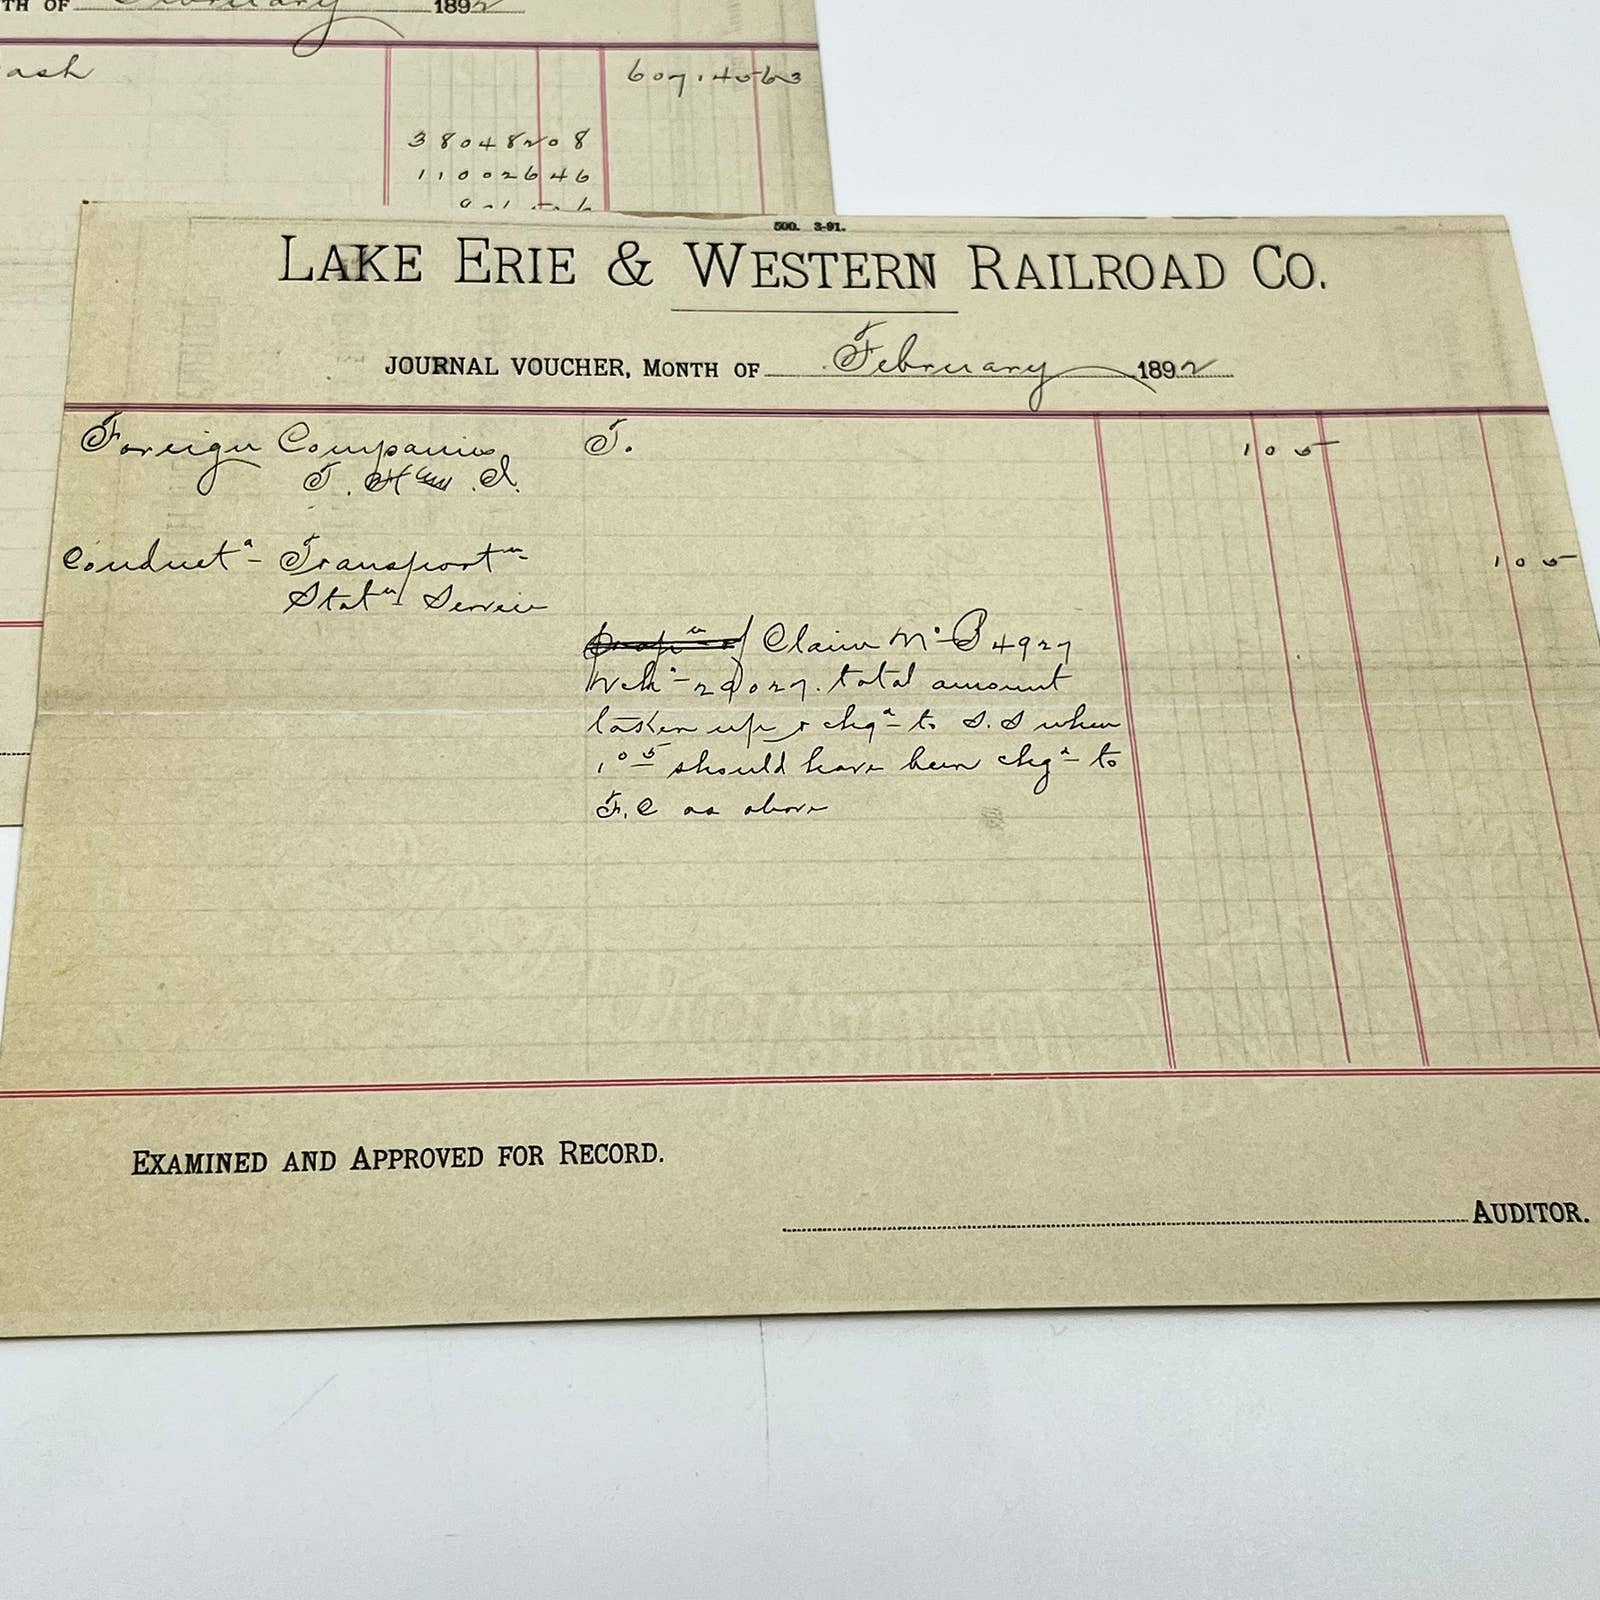 TH OF February 1892
ash 607,14563
38048208
11002646
500. 3-91.
LAKE ERIE & WESTERN RAILROAD CO.
JOURNAL VOUCHER, MONTH OF February 1892
Foreign Companies T. 105
T. H
Conductª Transportⁿ 105
Statⁿ Service
Claim Nº B 4927
29027. total amount
taken up & chgᵈ to S.S when
1 05 should have been chgᵈ to
F.C as above
EXAMINED AND APPROVED FOR RECORD.
AUDITOR.